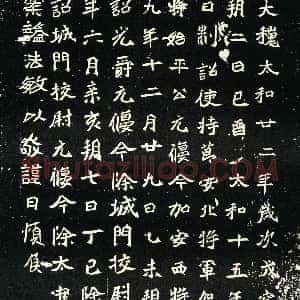 大魏太和廿二年歲次戊
朔二日己酉 太和十五年
日制詔使持節安北將軍假
將始平公元偃今加安西將
九年十二月廿九日乙未朔
詔光爵元偃今除城門校尉
年六月辛亥朔七日丁巳除
詔城門校尉元偃今除太
案謚法敏以敬謹曰頃侯
Shufaziliao.COM